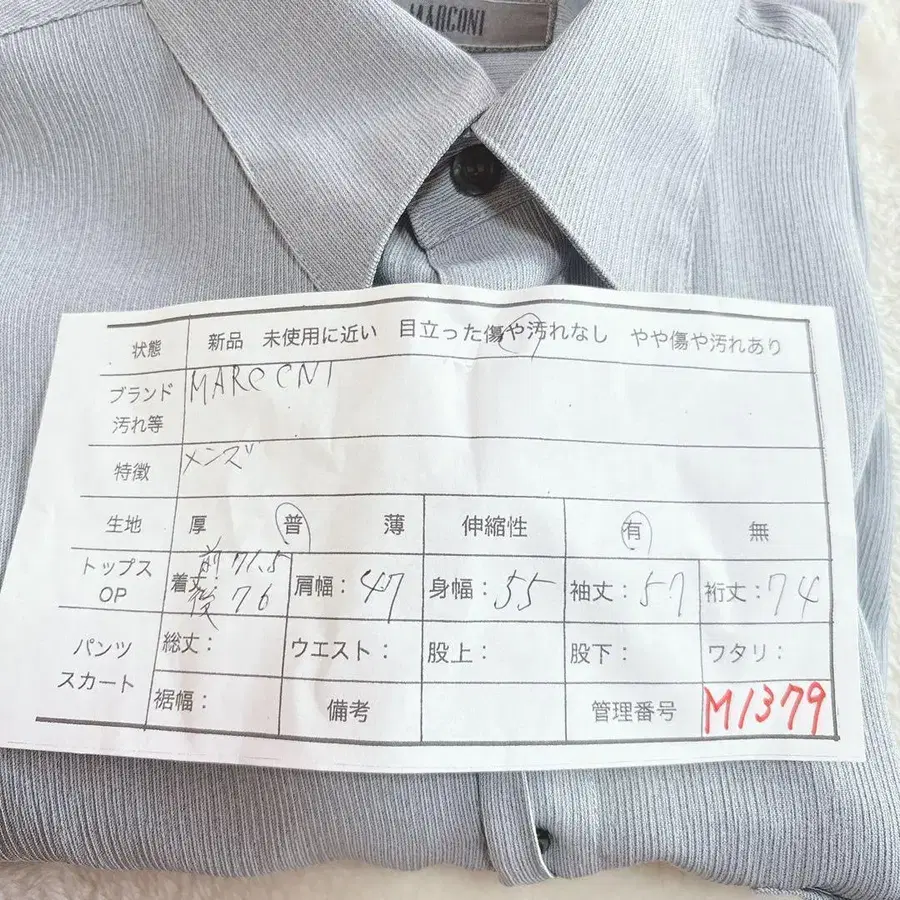 MARCONI
状態 新品 未使用に近い 目立った傷や汚れなし やや傷や汚れあり
ブランド MARCCNI
汚れ等
特徴 メンズ
生地 厚 普 薄 伸縮性 有 無
トップス OP 着丈: 前 71.5 後 76 肩幅: 47 身幅: 55 袖丈: 57 裄丈: 74
パンツ スカート 総丈: ウエスト: 股上: 股下: ワタリ:
裾幅: 備考 管理番号 M1379